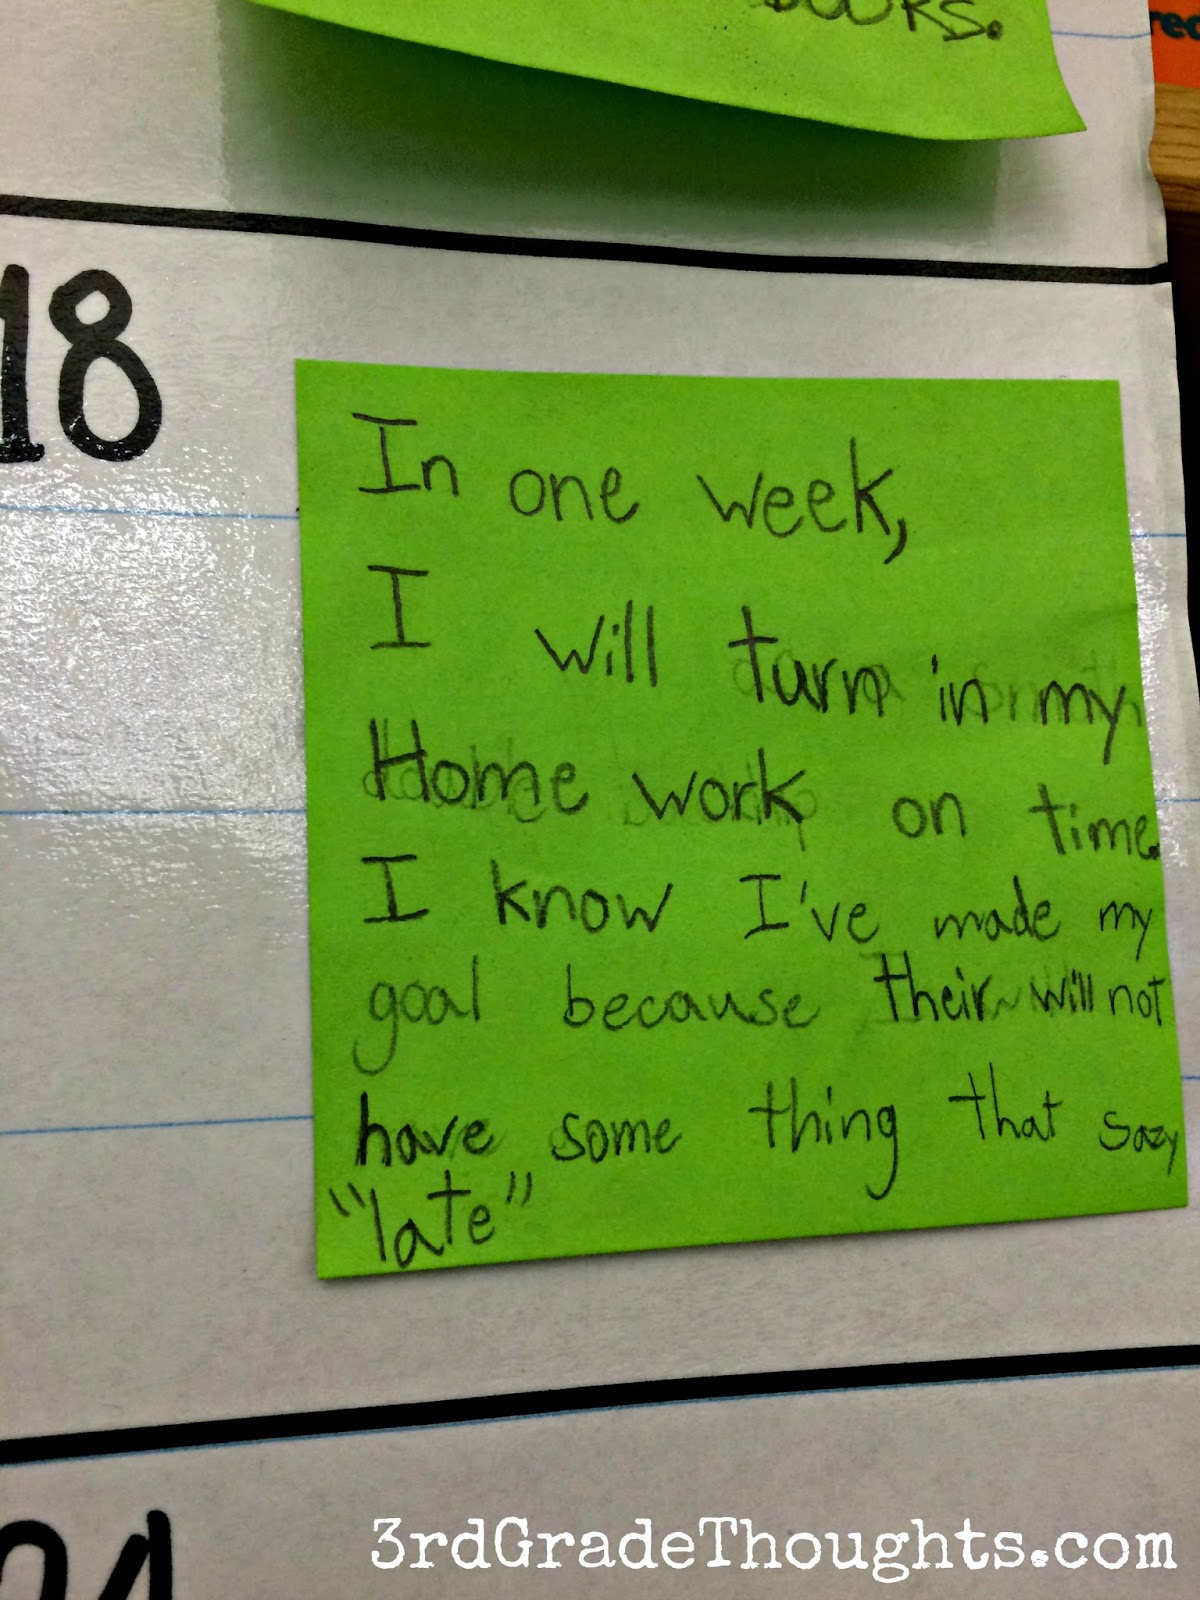 BOOKS.
18
In one week,
I will turn in my
Home work on time.
I know I've made my
goal because their will not
have some thing that sazy
"late"
3rdGradeThoughts.com